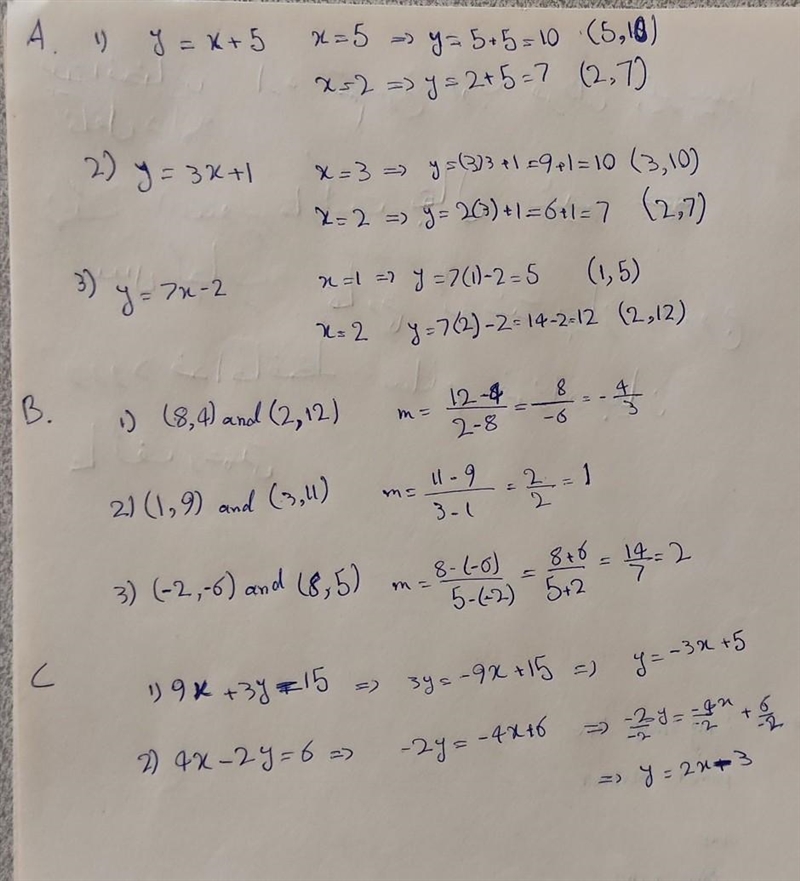 A. 1) y = x + 5 x = 5 => y = 5 + 5 = 10 (5, 10)
x = 2 => y = 2 + 5 = 7 (2, 7)
2) y = 3x + 1 x = 3 => y = (3)3 + 1 = 9 + 1 = 10 (3, 10)
x = 2 => y = 2(3) + 1 = 6 + 1 = 7 (2, 7)
3) y = 7x - 2 x = 1 => y = 7(1) - 2 = 5 (1, 5)
x = 2 y = 7(2) - 2 = 14 - 2 = 12 (2, 12)
B. 1) (8, 4) and (2, 12) m = (12 - 4)/(2 - 8) = 8/-6 = - 4/3
2) (1, 9) and (3, 11) m = (11 - 9)/(3 - 1) = 2/2 = 1
3) (-2, -6) and (8, 5) m = (8 - (-6))/(5 - (-2)) = (8 + 6)/(5 + 2) = 14/7 = 2
C 1) 9x + 3y = 15 => 3y = -9x + 15 => y = -3x + 5
2) 4x - 2y = 6 => -2y = -4x + 6 => -2/-2 y = -4x/-2 + 6/-2
=> y = 2x - 3